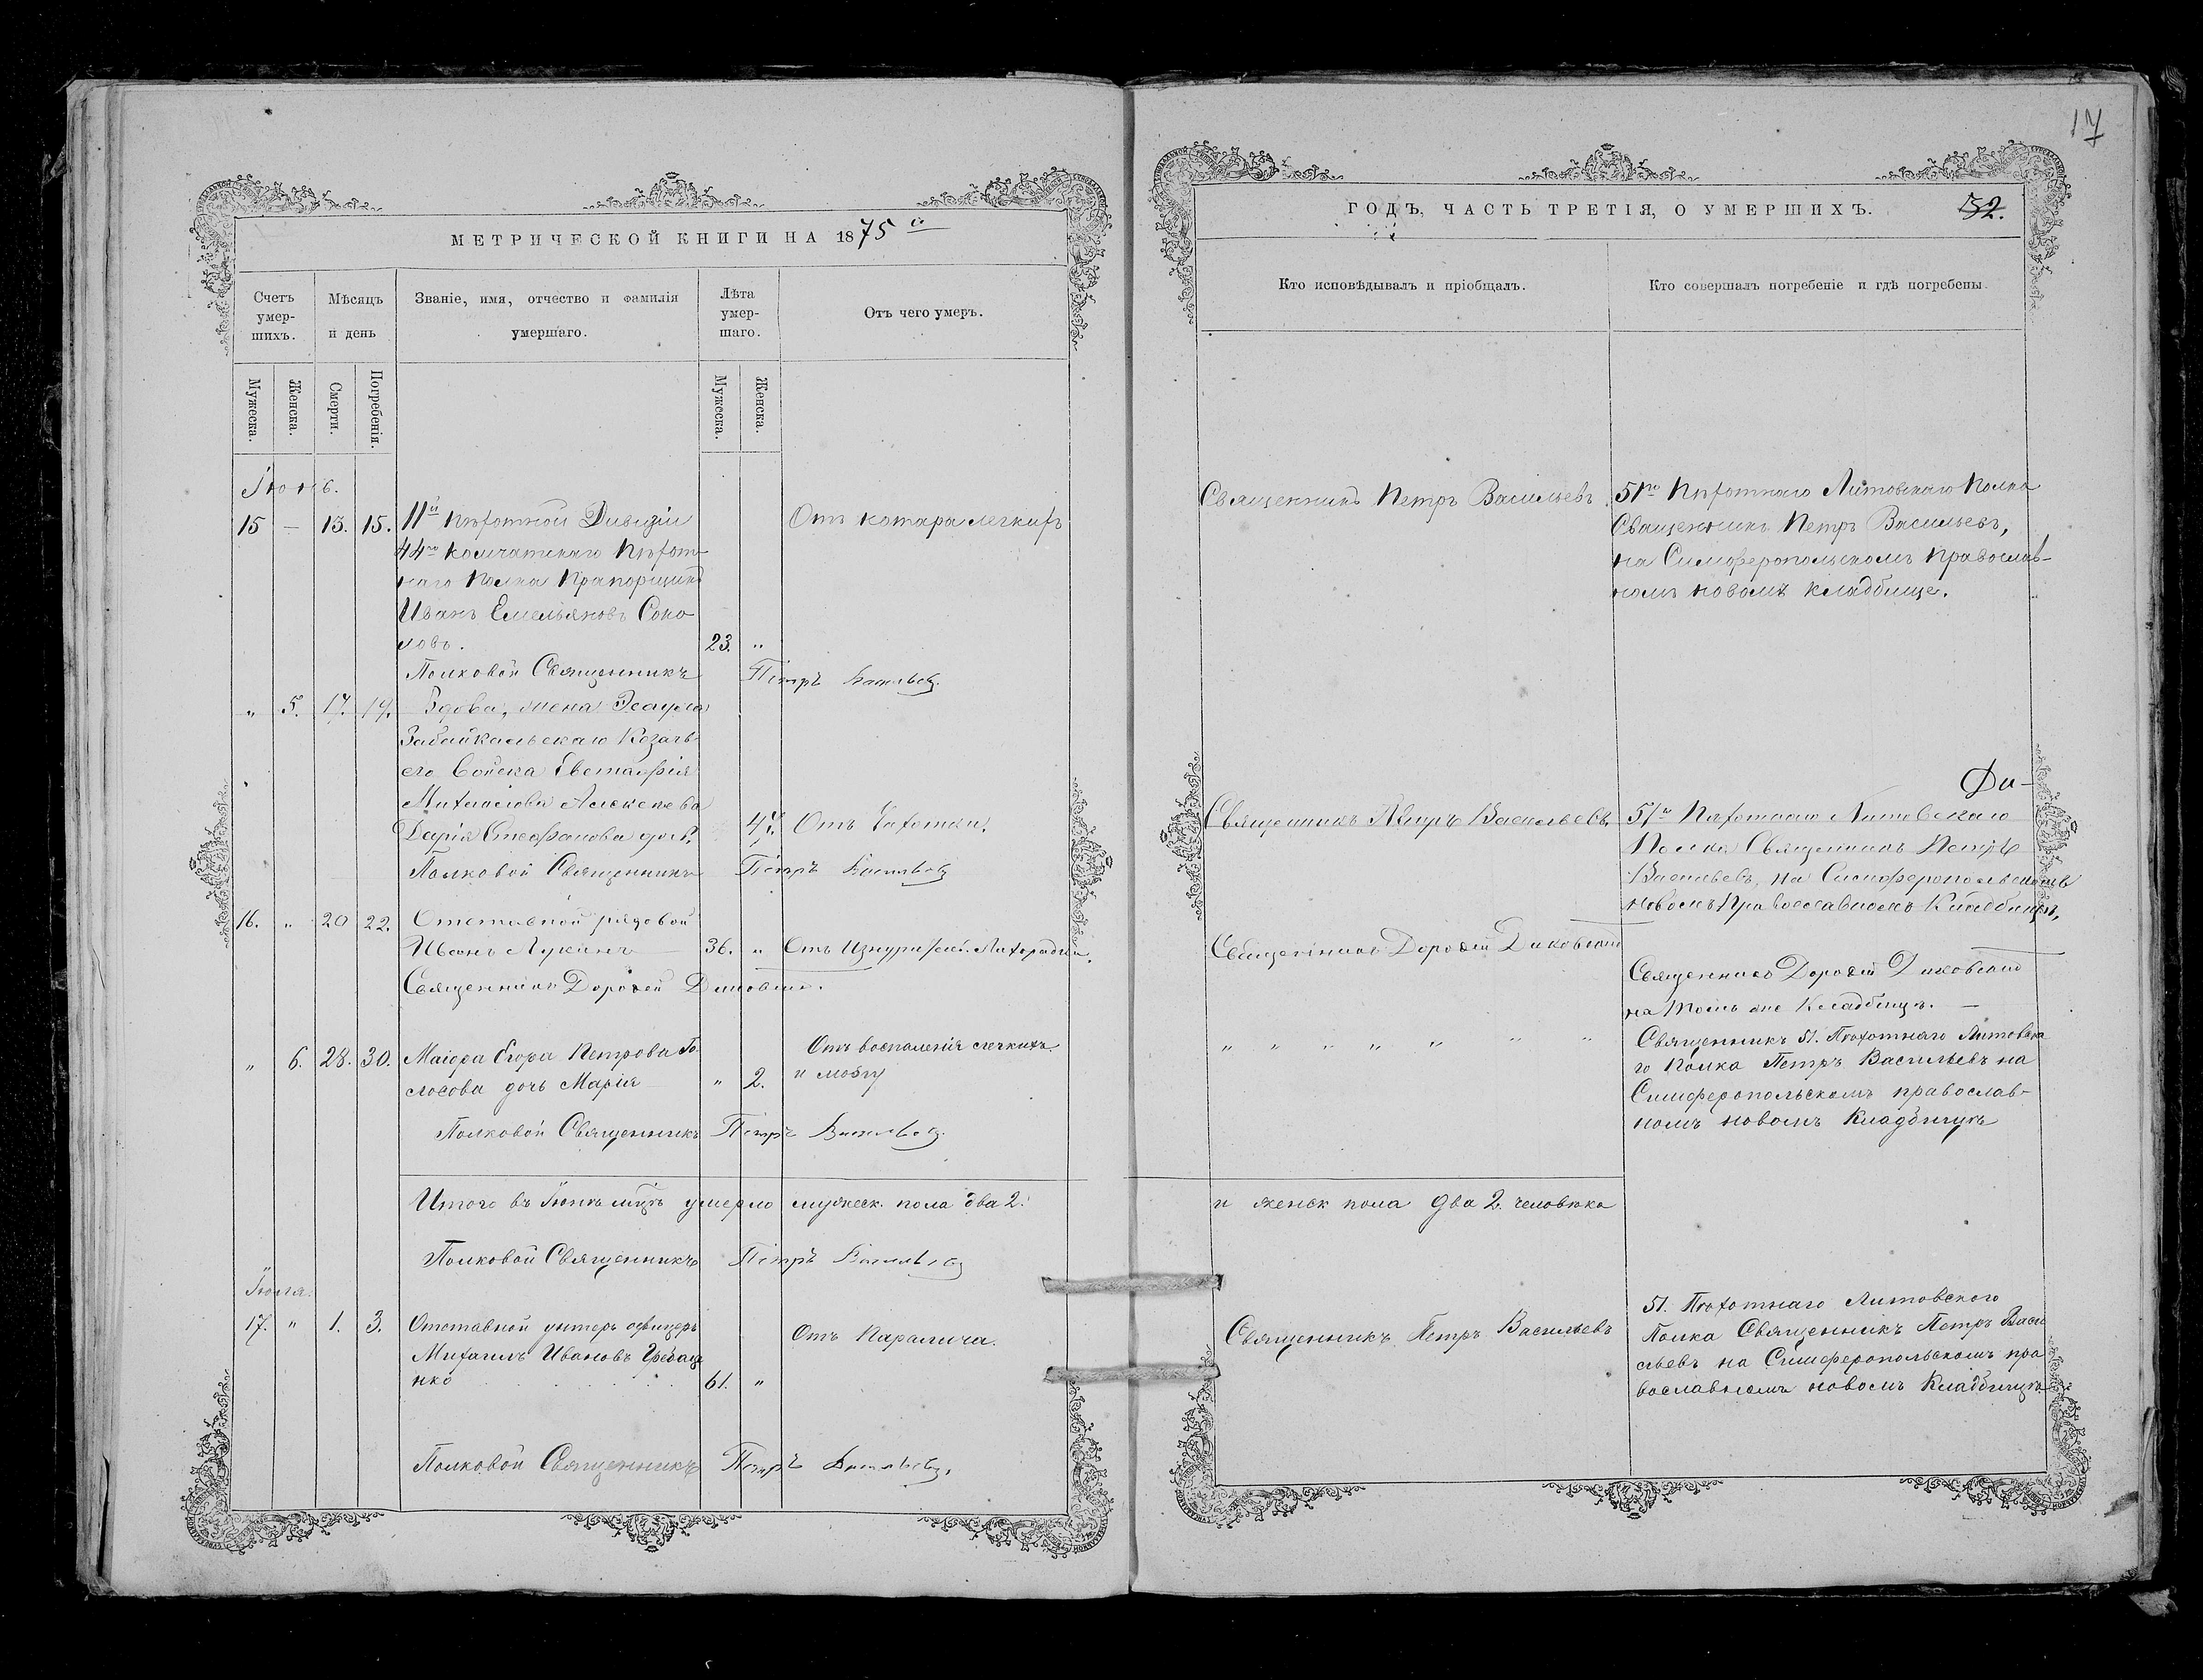 МЕТРИЧЕСКОЙ КНИГИ НА 1875 й
Счетъ умер-шихъ.
Мѣсяцъ и день
Званіе, имя, отчество и фамилія умершаго.
Лѣта умер-шаго.
Отъ чего умеръ.
Мужеска.
Женска.
Смерти.
Погребенія.
Мужеска.
Женска.
Іюнь.
15 — 13. 15. 11й пѣхотной Дивизіи
44го Камчатскаго Пѣхот-
наго Полка Прапорщикъ
Иванъ Емельяновъ Соко
ловъ. 23. "
Отъ катара легкихъ
Полковой Священникъ Петръ Васильевъ
" 5. 17. 19. Вдова, жена Эсаула
Забайкальскаго Козачь-
его Войска Евстафія
Михайлова Алексѣева
Дарія Стефанова доч. 47. Отъ Чахотки.
Полковой Священникъ Петръ Васильевъ
16. " 20 22. Отставной рядовой
Иванъ Лукинъ 36. " Отъ Изнурител. Лихорадки.
Священникъ Дорофей Диковскій.
" 6. 28. 30. Маіора Егора Петрова Го
лосова дочь Марія " 2.
Отъ воспаленія легкихъ
и мозгу
Полковой Священникъ Петръ Васильевъ
Итого въ Іюнѣ мцѣ умерло мужеск. пола два 2.
Полковой Священникъ Петръ Васильевъ
Іюля.
17. " 1. 3. Отставной унтеръ офицеръ
Михаилъ Ивановъ
нко 61. "
Отъ Паралича.
Полковой Священникъ Петръ Васильевъ.
17
ГОДЪ, ЧАСТЬ ТРЕТІЯ, О УМЕРШИХЪ. 52.
Кто исповѣдывалъ и пріобщалъ.
Кто совершалъ погребеніе и гдѣ погребены.
Священникъ Петръ Васильевъ
51го Пѣхотнаго Литовскаго Полка
Священникъ Петръ Васильевъ,
на Симферопольскомъ Православ-
номъ новомъ кладбище.
Ди-
Священникъ Петръ Васильевъ
51го Пѣхотнаго Литовскаго
Полка Священникъ Петръ
Васильевъ, на Симферопольскомъ
новомъ Православномъ Кладбищѣ,
Священникъ Дорофей Диковскій
Священникъ Дорофей Диковскій
на томъ же Кладбищѣ. —
" " " " " " "
Священникъ 51. Пѣхотнаго Литовска
го Полка Петръ Васильевъ на
Симферопольскомъ православ-
номъ новомъ Кладбищѣ
и женск пола два 2. человѣка
Священникъ Петръ Васильевъ
51. Пѣхотнаго Литовского
Полка Священникъ Петръ Васи
льевъ на Симферопольскомъ пра
вославномъ новомъ Кладбищѣ